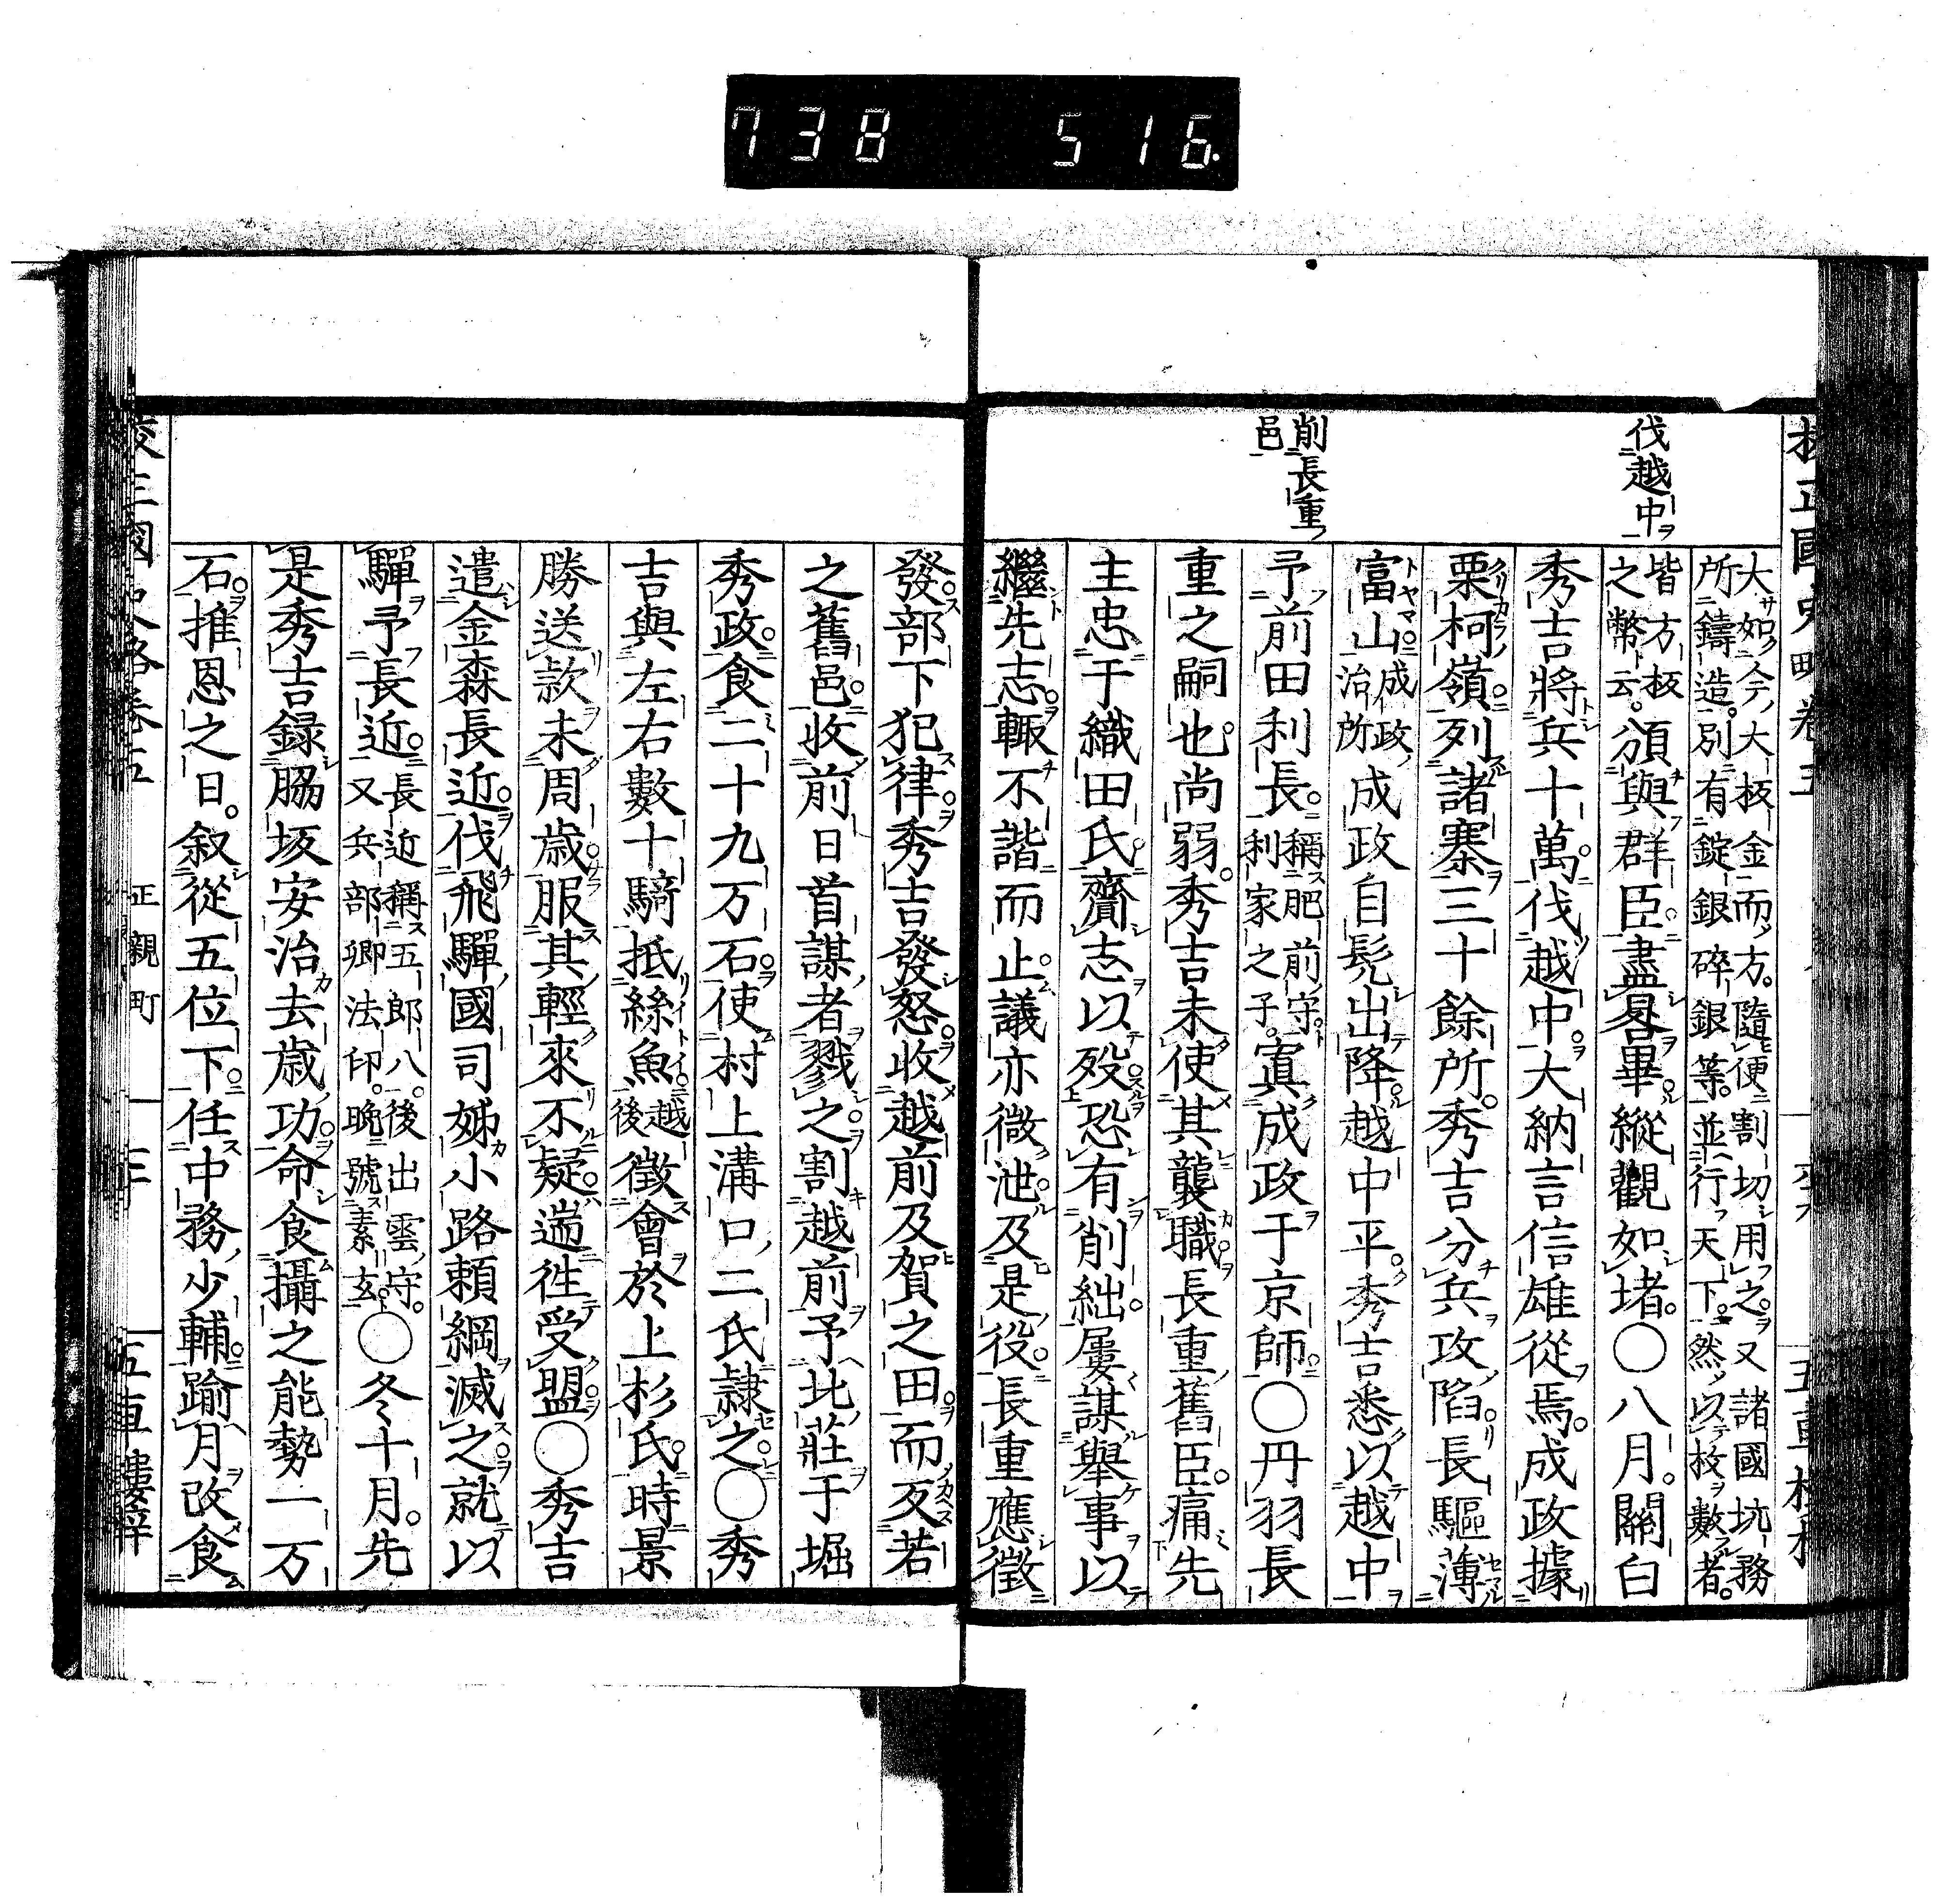 738 516
伐越中
削長重
邑
大如今大板金而方隨便割切用之又諸國坑務
所鑄造別有錠銀碎銀等並行天下然以枚數者
皆方板
之幣云
頒與群臣盡畧畢縱觀如堵〇八月關白
秀吉將兵十萬伐越中大納言信雄從焉成政據
栗柯嶺列諸寨三十餘所秀吉分兵攻陷長驅薄
富山
成政
治所
成政自髡出降越中平秀吉悉以越中
予前田利長
稱肥前守
利家之子
寘成政于京師〇丹羽長
重之嗣也尚弱秀吉未使其襲職長重舊臣痛先
主忠于織田氏齎志以歿恐有削絀屢謀舉事以
繼先志輙不諧而止議亦微泄及是役長重應徵
發部下犯律秀吉發怒收越前及賀之田而反若
之舊邑收前日首謀者戮之割越前予北莊于堀
秀政食二十九万石使村上溝口二氏隷之〇秀
吉與左右數十騎抵絲魚
越
後
徵會於上杉氏時景
勝送款未周歳服其輕來不疑遄徃受盟〇秀吉
遣金森長近伐飛驒國司姊小路頼綱滅之就以
驒予長近
長近稱五郎八後出雲守
又兵部卿法印晩號素玄
〇冬十月先
是秀吉録脇坂安治去歳功命食攝之能勢一万
石推恩之日叙從五位下任中務少輔踰月改食
正親町